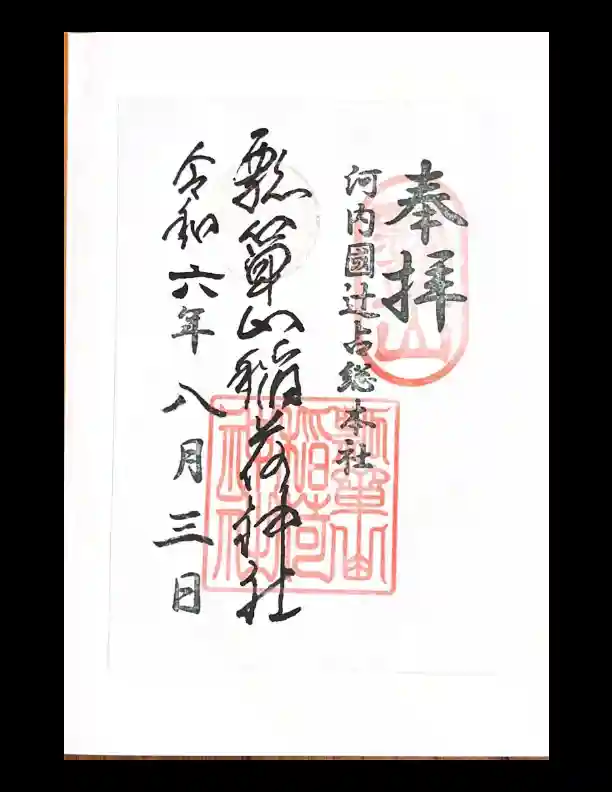 奉拝
河内國辻占総本社
瓢箪山稲荷神社
令和六年八月三日